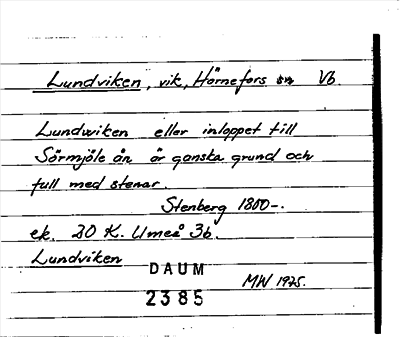 Lundviken, vik, Hörnefors sn Vb.
Lundwiken eller inloppet till
Sörmjöle ån är ganska grund och
full med stenar.
Stenberg 1800-.
ek. 20 K. Umeå 3b.
Lundviken
DAUM
MW 1975.
2385